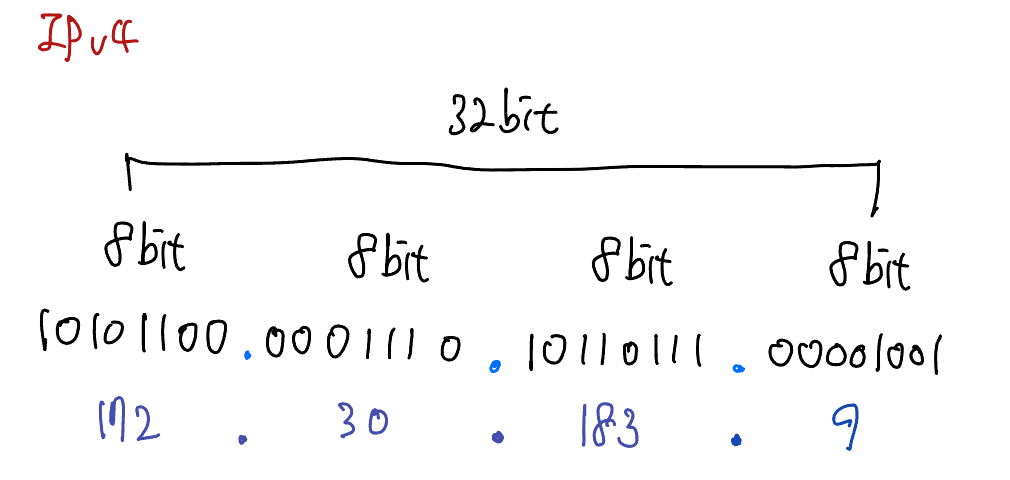 IPv4
32bit
8bit 8bit 8bit 8bit
10101100.0001110.10110111.00001001
172.30.183.9